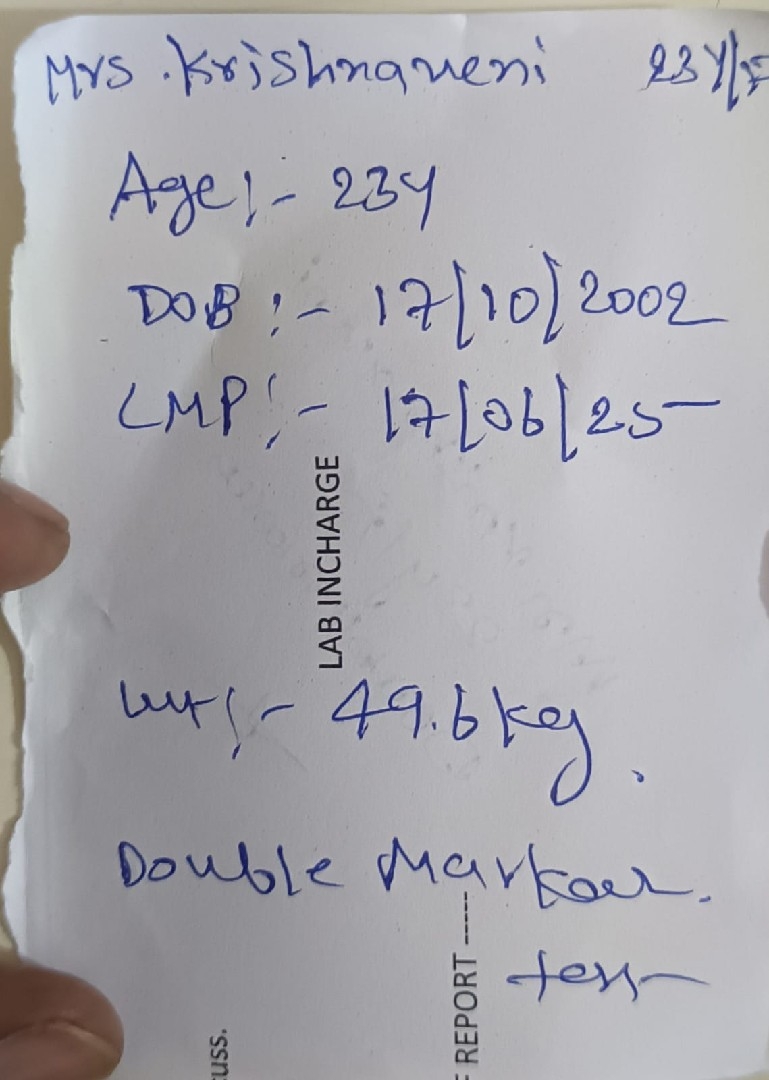 Mrs. Krishnaveni 23Y/F
Age:- 23Y
DOB:- 17/10/2002
LMP:- 17/06/25
LAB INCHARGE
wt:- 49.6kg.
Double Marker.
test
REPORT -----
uss.